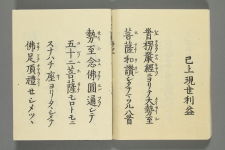 已上現世利益
首楞嚴經ニヨリテ大勢至
菩薩和讃シタテマツル八首
勢至念佛圓通シテ
五十二菩薩モロトモニ
スナハチ座ヨリタヽシメテ
佛足頂禮セシメツヽ